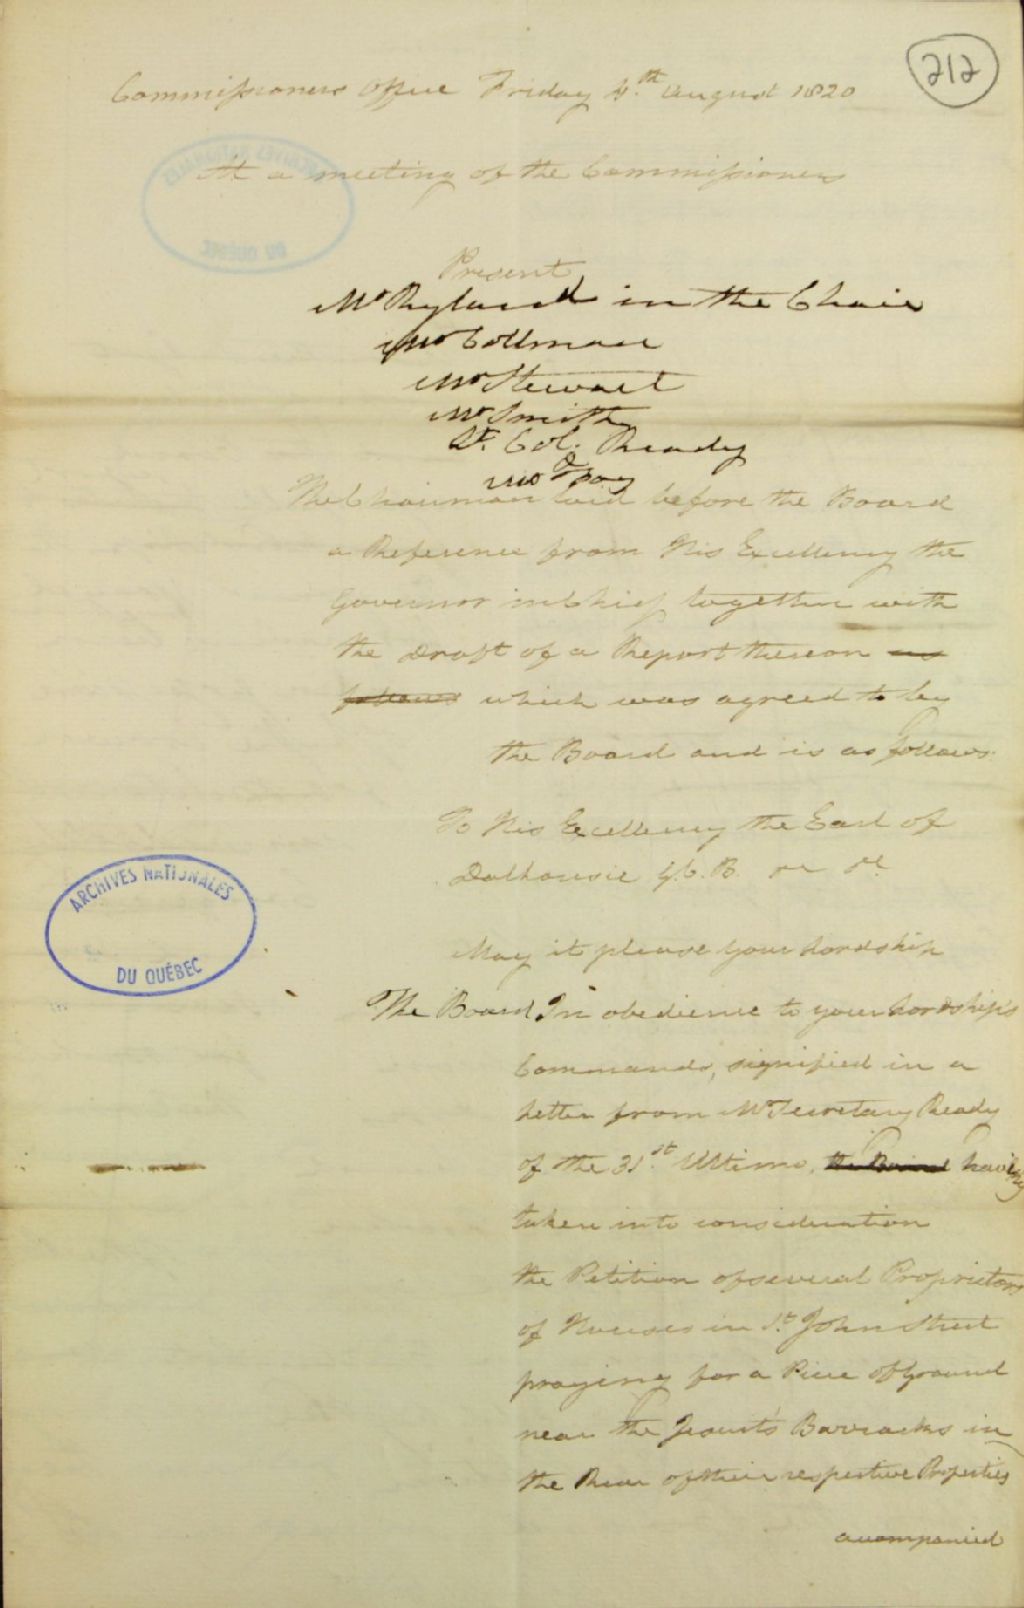 212
Commissioners Office Friday 4.th August 1820
At a meeting of the Commissioners
Present
Mr Ryland in the Chair
Mr Coltman
Mr Stewart
Mr Smith
Lt. Col. Ready
Mr Foy
The Chairman laid before the Board
a Reference from His Excellency the
Governor in Chief together with
the Draft of a Report thereon as
follows which was agreed to by
the Board and is as follows.
To His Excellency the Earl of
Dalhousie G.C.B.
May it please your Lordship
The Board In obedience to your Lordship's
Commands, signified in a
Letter from Mr Secretary Ready
of the 31.st Ultimo, the Board having
taken into consideration
the Petition of several Proprietors
of Houses in St. John Street
praying for a Piece of Ground
near the Jesuit's Barracks in
the Rear of their respective Properties
accompanied
ARCHIVES NATIONALES
DU QUÉBEC